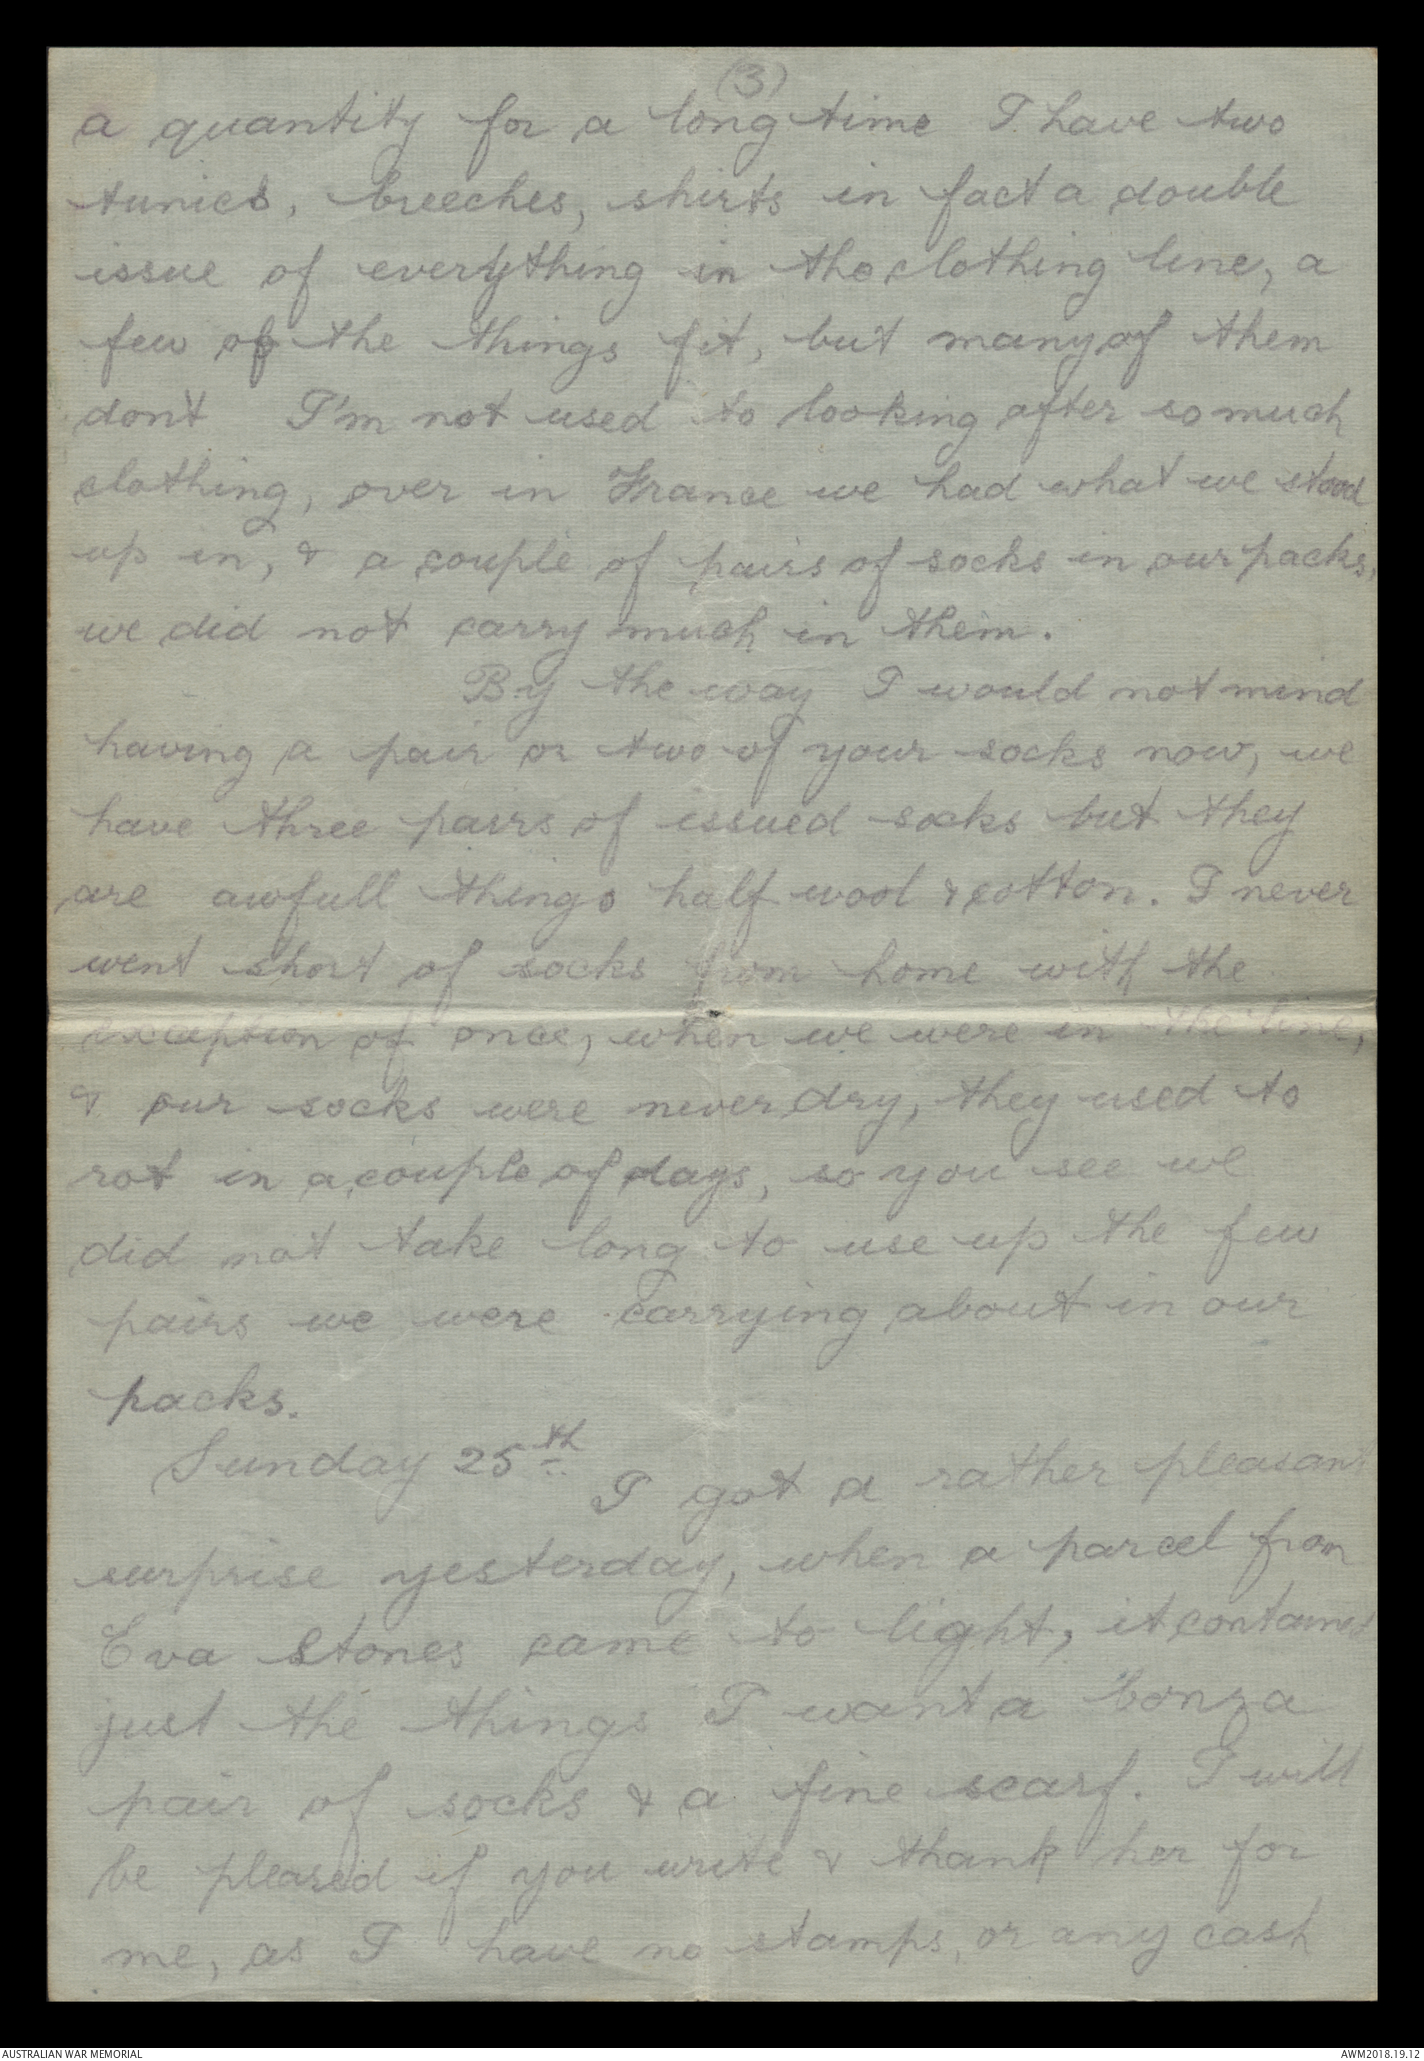 (3)
a quantity for a long time I have two
tunics, breeches, shirts in fact a double
issue of everything in the clothing line, a
few of the things fit, but many of them
dont I'm not used to looking after so much
clothing, over in France we had what we stood
up in, & a couple of pairs of socks in our packs,
we did not carry much in them.
By the way I would not mind
having a pair or two of your socks now, we
have three pairs of issued socks but they
are awfull things half wool & cotton. I never
went short of socks from home with the
exception of once, when we were in the line,
& our socks were never dry, they used to
rot in a couple of days, so you see we
did not take long to use up the few
pairs we were carrying about in our
packs.
Sunday 25th
I got a rather pleasant
surprise yesterday, when a parcel from
Eva Stones came to light, it contained
just the things I want a bonza
pair of socks & a fine scarf. I will
be pleased if you write & thank her for
me, as I have no stamps, or any cash
AUSTRALIAN WAR MEMORIAL
AWM2018.19.12